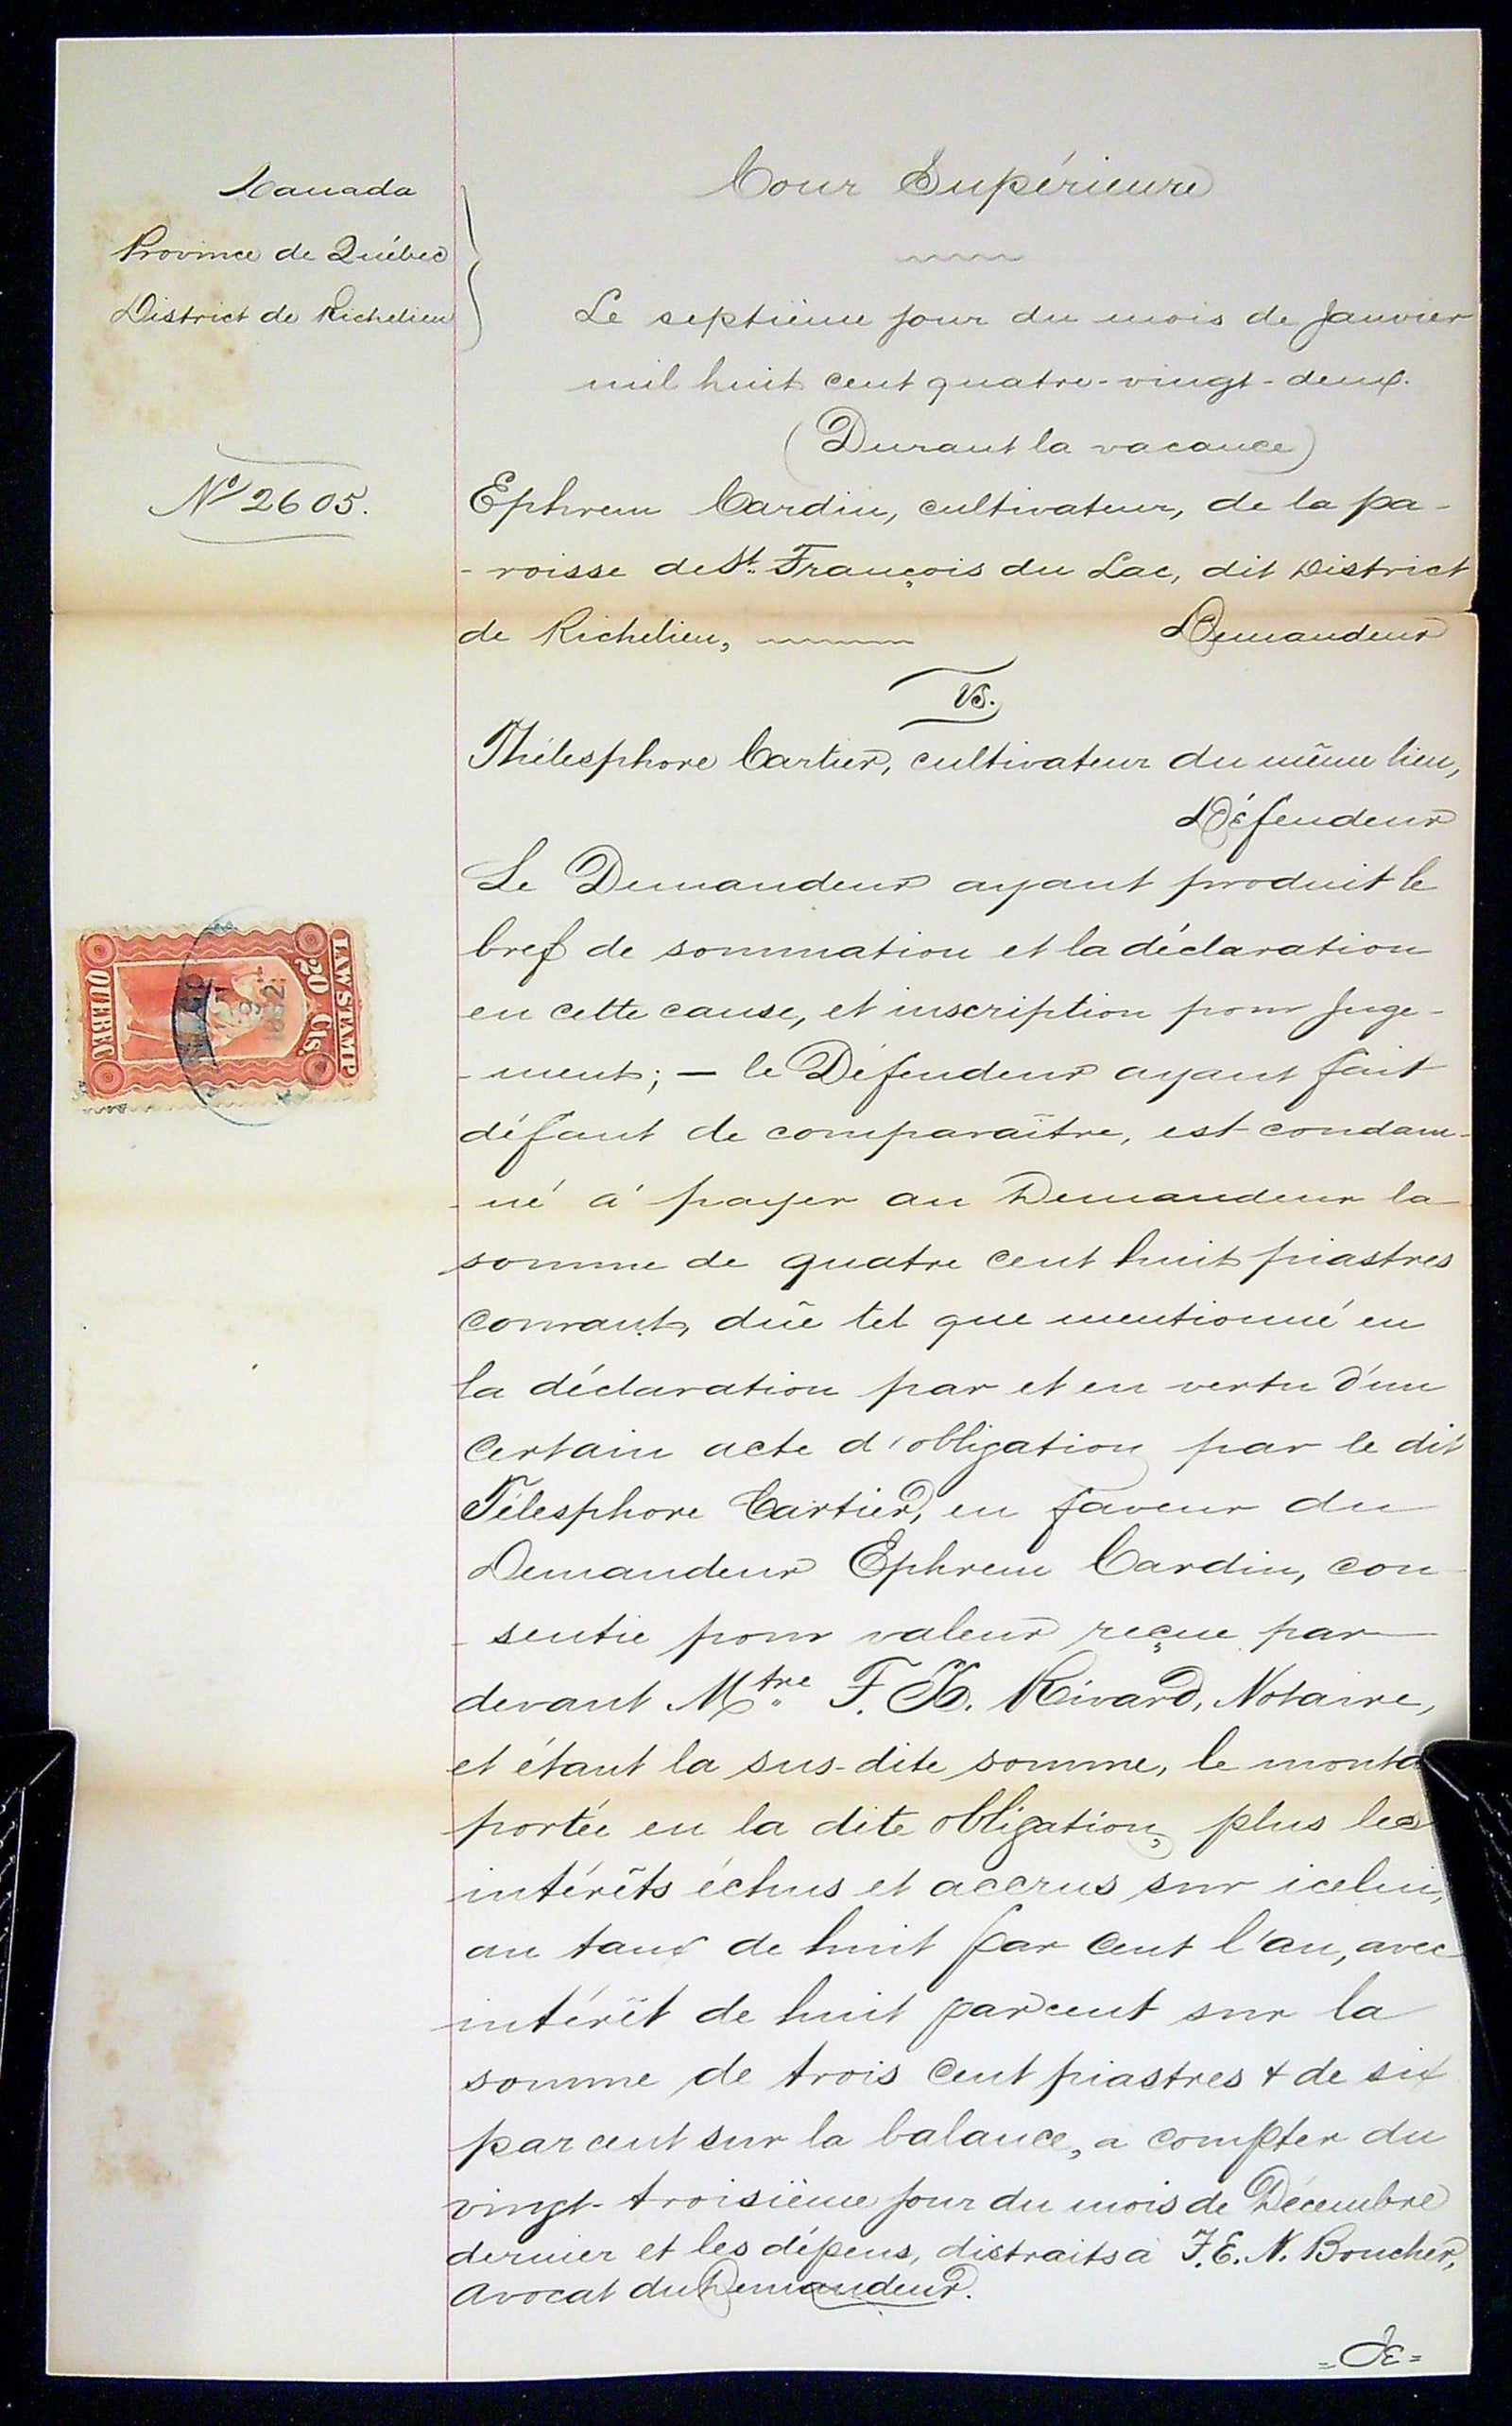 Canada
Province de Québec
District de Richelieu
Cour Supérieure
Le septième jour du mois de Janvier
mil huit cent quatre-vingt-deux.
(Durant la vacance)
No 2605.
Ephrem Cardin, cultivateur, de la pa-
-roisse de St. François du Lac, dit District
de Richelieu, Demandeur
vs.
Thélesphore Cartier, cultivateur du même lieu,
Défendeur
Le Demandeur ayant produit le
bref de sommation et la déclaration
en cette cause, et inscription pour Juge-
-ment; — le Défendeur ayant fait
défaut de comparaître, est condam-
-né à payer au Demandeur la
somme de quatre cent huit piastres
courant, dûe tel que mentionné en
la déclaration par et en vertu d'un
certain acte d'obligation par le dit
Télesphore Cartier, en faveur du
Demandeur Ephrem Cardin, con
-sentie pour valeur reçue par
devant Mtre F. X. Rivard, Notaire,
et étant la sus-dite somme, le monta
portée en la dite obligation, plus les
intérêts échus et accrus sur icelui,
au taux de huit par cent l'an, avec
intérêt de huit par cent sur la
somme de trois cent piastres & de six
par cent sur la balance, a compter du
vingt-troisième jour du mois de Décembre
dernier et les dépens, distraits à F. E. N. Boucher,
avocat du Demandeur.
LAW STAMP
20 Cts.
QUEBEC
1882